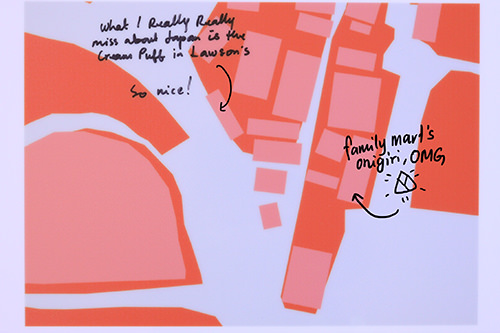 What I Really Really
miss about Japan is the
Cream Puff in Lawson's
So nice!
family mart's
onigiri, OMG